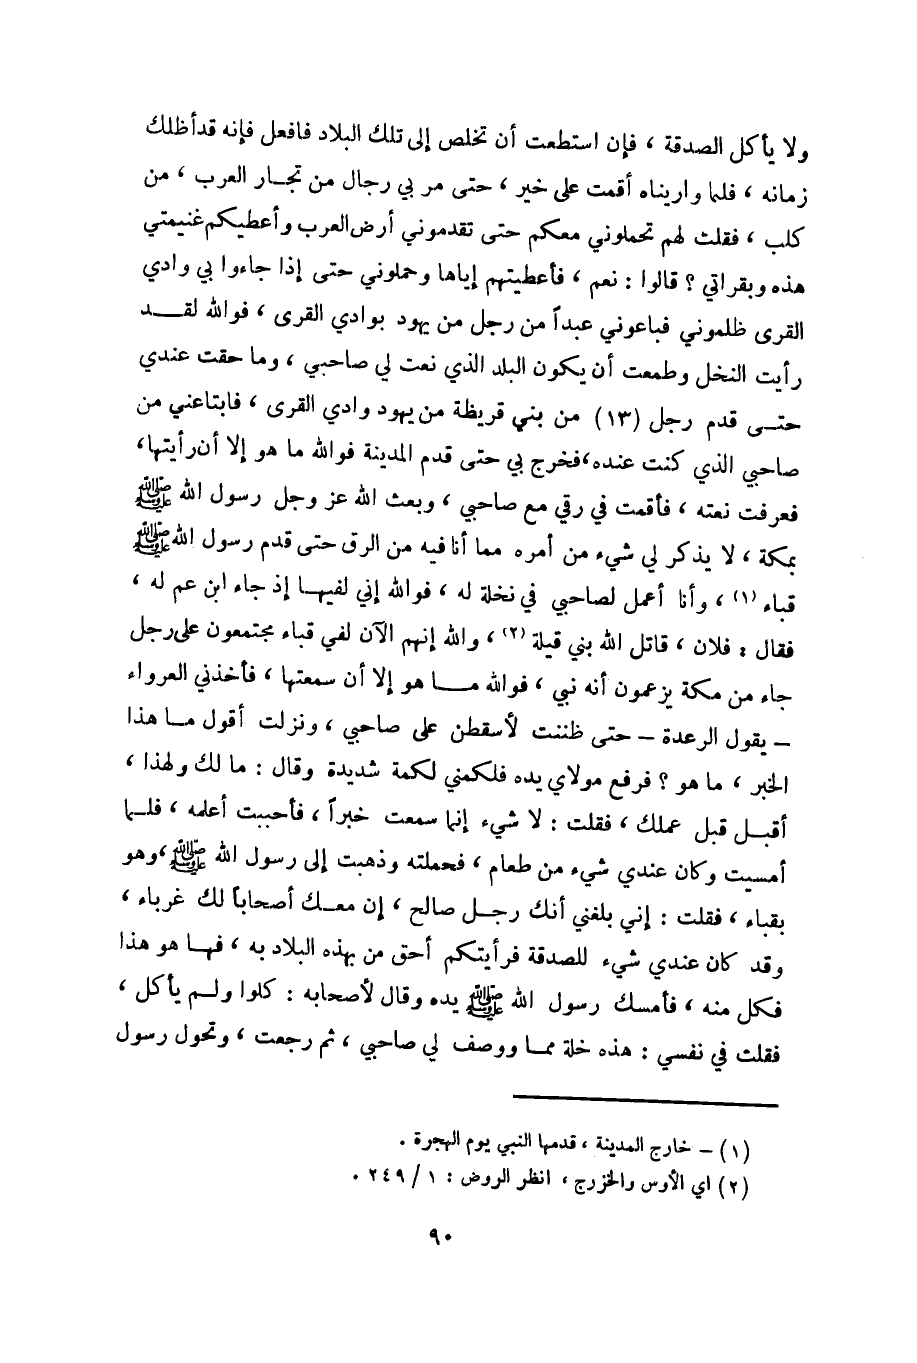 ولا يأكل الصدقة ، فإن استطعت أن تخلص إلى تلك البلاد فافعل فإنه قد أظلك
زمانه ، فلما واريناه أقمت على خير ، حتى مر بي رجال من تجـار العرب ، من
كلب ، فقلت لهم تحملوني معكم حتى تقدموني أرض العرب وأعطيكم غنيمتي
هذه وبقراتي ؟ قالوا : نعم ، فأعطيتهم إياها وحملوني حتى إذا جاءوا بي وادي
القرى ظلموني فباعوني عبداً من رجل من يهود بوادي القرى ، فوالله لقـــد
رأيت النخل وطمعت أن يكون البلد الذي نعت لي صاحبي ، وما حقت عندي
حتـى قدم رجل (١٣) من بني قريظة من يهود وادي القرى ، فابتاعني من
صاحبي الذي كنت عنده، فخرج بي حتى قدم المدينة فوالله ما هو إلا أن رأيتها،
فعرفت نعته ، فأقمت في رقي مع صاحبي ، وبعث الله عز وجل رسول الله ﷺ
بمكة ، لا يذكر لي شيء من أمره مما أنا فيه من الرق حتى قدم رسول الله ﷺ
قباء (١) ، وأنا أعمل لصاحبي في نخلة له ، فوالله إني لفيهـا إذ جاء ابن عم له ،
فقال : فلان ، قاتل الله بني قيلة (٢) ، والله إنهم الآن لفي قباء مجتمعون على رجل
جاء من مكة يزعمون أنه نبي ، فوالله مــا هو إلا أن سمعتها ، فأخذني العرواء
– يقول الرعدة – حتى ظننت لأسقطن على صاحبي ، ونزلت أقول مـا هذا
الخبر ، ما هو ؟ فرفع مولاي يده فلكمني لكمة شديدة وقال : ما لك ولهذا ،
أقبـل قبل عملك ، فقلت : لا شيء إنما سمعت خبراً ، فأحببت أعلمه ، فلـما
أمسيت وكان عندي شيء من طعام ، فحملته وذهبت إلى رسول الله ﷺ ، وهو
بقباء ، فقلت : إني بلغني أنك رجـل صالح ، إن معـك أصحاباً لك غرباء ،
وقد كان عندي شيء للصدقة فرأيتكم أحق من بهذه البلاد به ، فهـا هو هذا
فكل منه ، فأمسك رسول الله ﷺ يده وقال لأصحابه : كلوا ولـم يأكل ،
فقلت في نفسي : هذه خلة ممـا ووصف لي صاحبي ، ثم رجعت ، وتحول رسول
(١) – خارج المدينة ، قدمها النبي يوم الهجرة .
(٢) اي الأوس والخزرج ، انظر الروض : ١ / ٢٤٩ .
٩٠